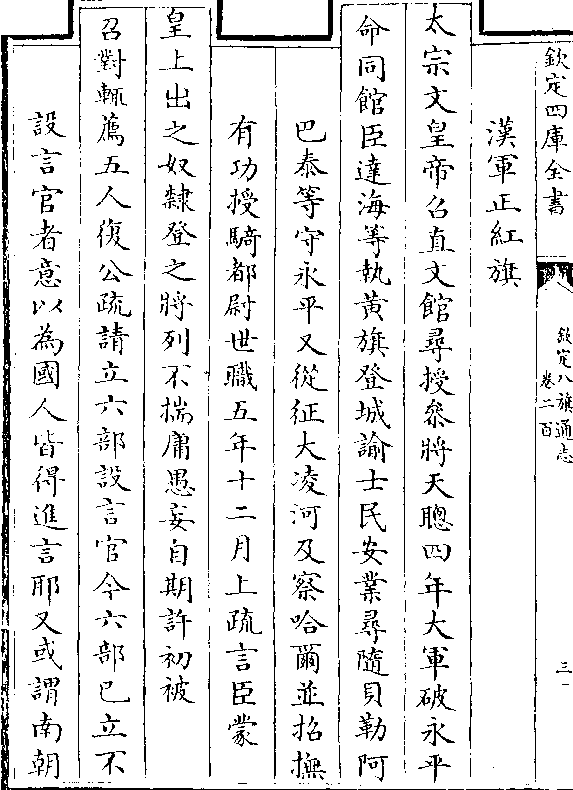 欽定四庫全書
欽定八旗通志
卷二百
三
漢軍正紅旗
太宗文皇帝召直文館尋授叅將天聰四年大軍破永平
命同館臣達海等執黃旗登城諭士民安業尋隨貝勒阿
巴泰等守永平又從征大凌河及察哈爾並招撫
有功授騎都尉世職五年十二月上疏言臣蒙
皇上出之奴隸登之將列不揣庸愚妄自期許初被
召對輒薦五人復公疏請立六部設言官今六部已立不
設言官者意以為國人皆得進言耶又或謂南朝